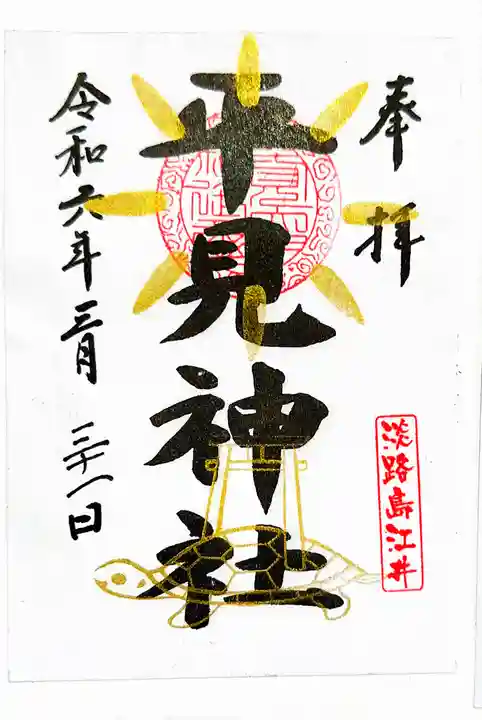 奉拝
淡路島江井
平見神社
令和六年三月三十一日